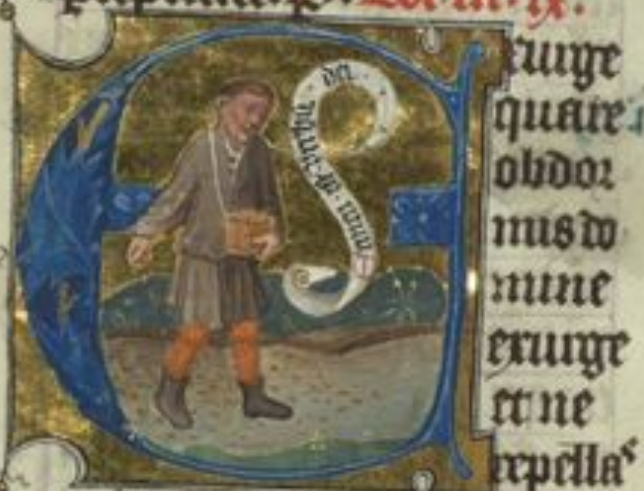 Exurge
quare
obdor
mis do
mine
exurge
et ne
repellas
dei